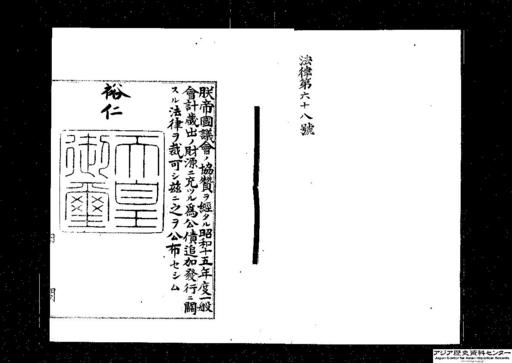 法律第六十八號
朕帝國議會ノ協贊ヲ經タル昭和十五年度一般
會計歲出ノ財源ニ充ツル爲公債追加發行ニ關
スル法律ヲ裁可シ茲ニ之ヲ公布セシム
裕仁
天皇
御璽
アジア歴史資料センター
Japan Center for Asian Historical Records